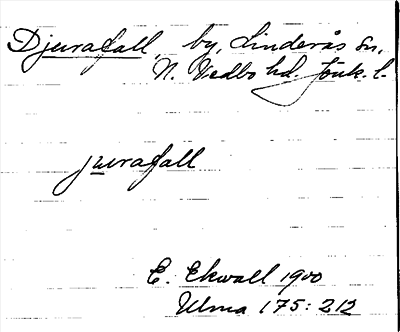 Djurafall, by, Linderås sn,
N. Vedbo hd. Jönk. l.
jurafall
E. Ekwall 1900
Ulma 175: 212